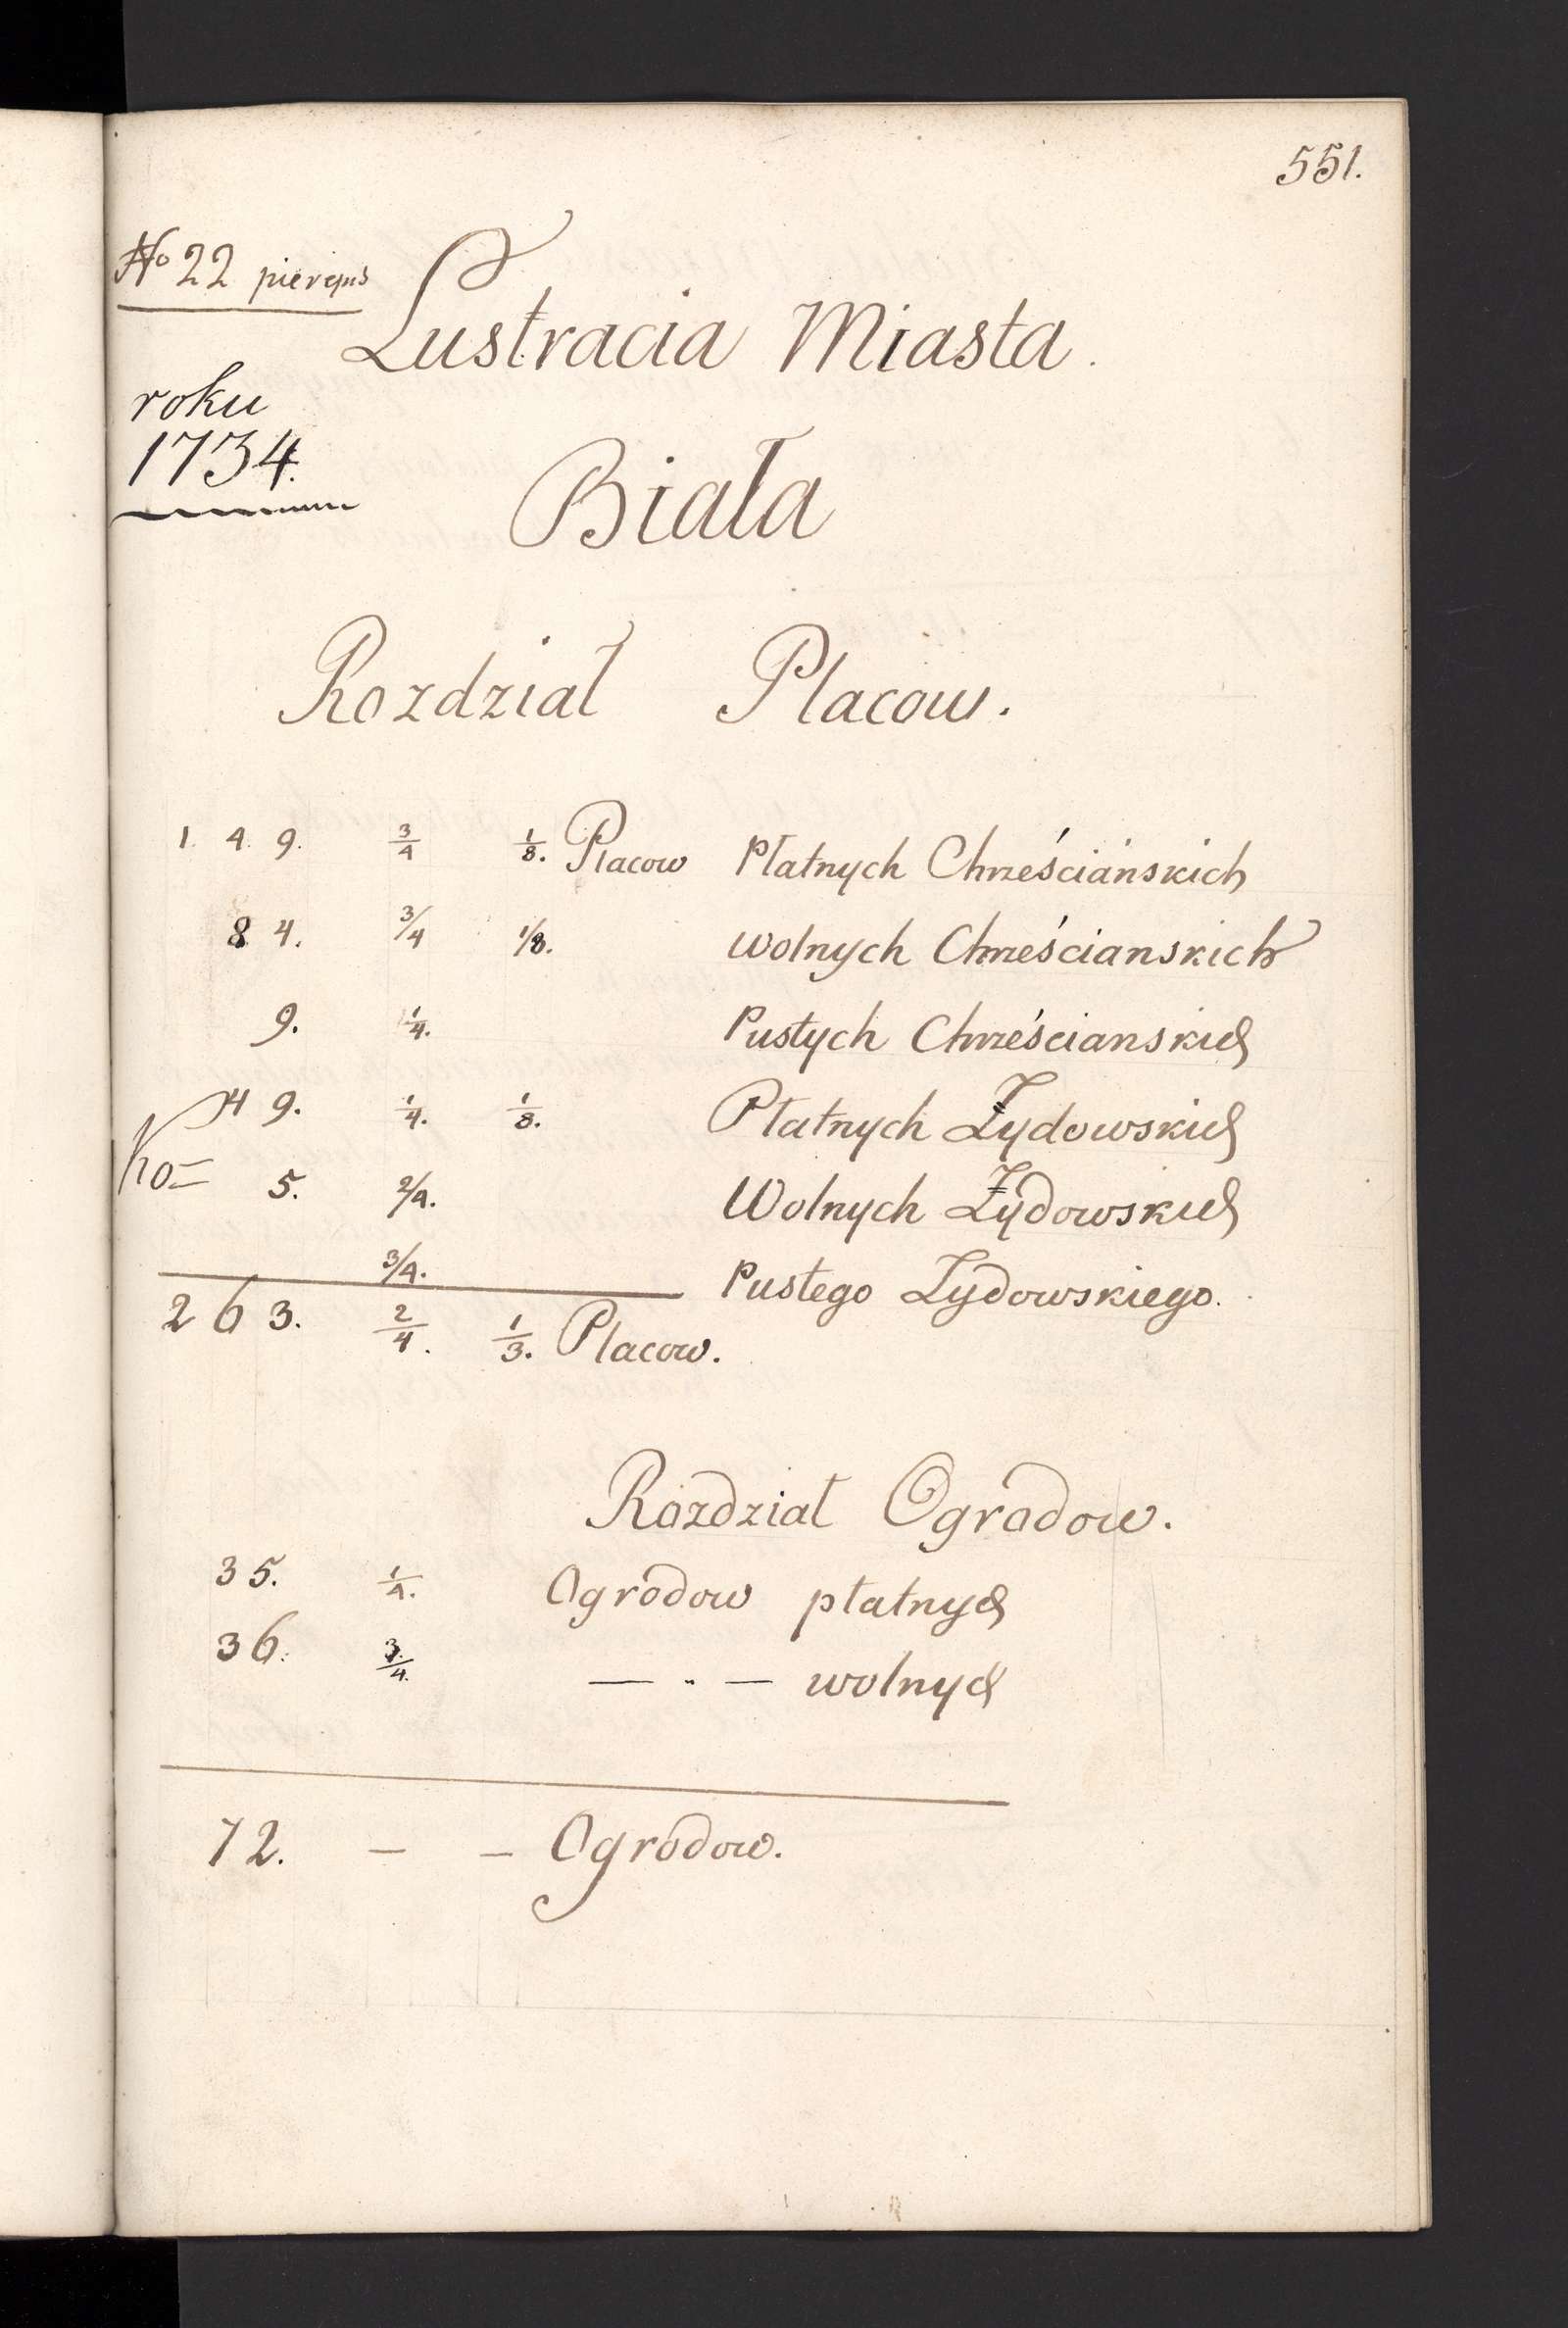 551.
No 22
Lustracia Miasta.
roku
1734.
Biała
Rozdział Placow.
149. 3/4 1/8. Placow Płatnych Chrześciańskich
84. 3/4 1/8. wolnych Chrześcianskich
9. 1/4. Pustych Chrześcianskich
49. 1/4. 1/8. Płatnych Żydowskich
5. 2/4. Wolnych Żydowskich
3/4. Pustego Żydowskiego.
263. 2/4. 1/3. Placow.
Rozdział Ogrodow.
35. 1/4. Ogrodow płatnych
36. 3/4. — „ — wolnych
72. — — Ogrodow.